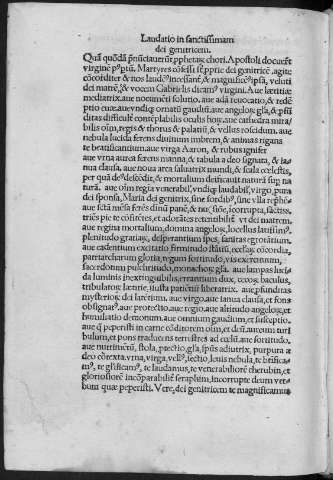 Laudatio in sanctissimam
dei genitricem.
Quā quōdā p̄nūciaverūt ꝓphetaꝝ chori. Apostoli docuerūt
virginē Martyres cōfessi st̄ ꝓprie dei genitricē. agite
cōcorditer & nos laudem⁹ incessant̄, & magnificem⁹ ipsā, veluti
dei matrē, & vocem Gabrielis dicam⁹ virgini. Aue lætitiæ
mediatrix. aue nocumēti solutio. aue adā reuocatio, & redē
ptio euæ. aue vndiq ornatū gaudiū. aue angeloꝝ gl̄a, & ꝓfū
ditas difficulē contēplabilis oculis hoy. aue cathedra mira
bilis oīm, regis & thorus & palatiū, & vellus roscidum. aue
nebula lucida ferens diuinum imbrem, & animas rigans
te beatificantium. aue virga Aaron, & rubus ignifer
aue vrna aurea ferens manna, & tabula a deo signata, & ia-
nua clausa. aue noua arca saluatrix mundi, & scala cœlestis,
per quā de⁹ descēdit, & mortalium deificauit naturā sup na
turā. aue oīm regia venerabil⁹, vndiq laudabil⁹, virgo, pura
dei sponsa, Maria dei genitrix,
aue sctā mēsa ferēs diuinū panē, icorrupta, sactiss.
pie te cōfitētes, et adorātes retentibilit̄ vt dei matrem.
aue regina mortalium, domina angeloꝝ, locellus latissim⁹.
plenitudo gratiaꝝ, desperantium spes, sanitas egrotantium
aue cadentium excitatio firmitudo stātiū, ecclīaꝝ cōcordia,
patriarcharum gloria, regum fortitudo, vis exercituum,
sacerdotum pulchritudo, monachoꝝ gl̄a. aue lampas luci
da luminis inextinguibilis, errantium dux, cecoꝝ baculus,
tribulatoꝝ lætitie, iusta patiētiū liberatrix. aue ꝓfunditas
mysterioꝝ dei latētium. aue virgo. aue ianua clausa, et fons
obsignat⁹. aue protectio. aue regio. aue altitudo angeloꝝ, et
humiliatio demonum. aue omnium gaudium, et susceptio.
aue q̄ peperisti in carne cōditorem oīm, et deū. aue
et pons traducens terrestres ad ecclū. aue fortitudo,
aue nutritiū, stola, ꝓtectio, gl̄a, spūs adiutrix, purpura a
deo cōtexta. vrna, virga, vell⁹, lectio, louis nebula, te btificam
m⁹, te glificam⁹, te laudamus, te venerabilioré cherubin, et
gloriosiorē incōparabilit̄ seraphim, incorrupte deum ver-
bum quæ peperisti. Vere, dei genitricem te magnificamus